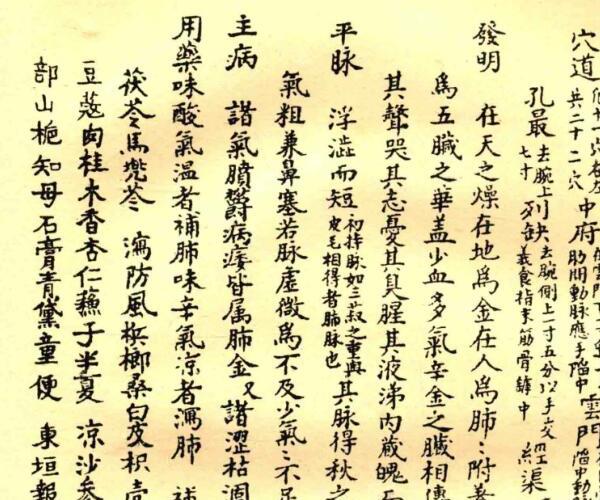 穴道
共二十二穴 中府 肋間動脉應手陷中 雲門 陷中動
孔最 去腕上七寸 列缺 去腕側上一寸五分以手交 義食指末筋骨罅中 經渠
發明 在天之燥在地為金在人為肺〻附着
為五臓之華盖少血多氣辛金之臓相傳
其聲哭其志憂其臭腥其液涕内蔵魄
平脉 浮澁而短 初持脉如三菽之重與皮毛相得者肺脉也 其脉得秋之
氣粗兼鼻塞若脉虚微為不及少氣〻不足
主病 諸氣膹鬱病痿皆属肺金又諸澀枯涸
用藥味酸氣温者補肺味辛氣凉者瀉肺 補
茯苓馬兜苓 瀉防風檳榔桑白皮枳壳
豆蔻肉桂木香杏仁蘓子半夏 凉沙参
部山梔知母石膏青黛童便 東垣報